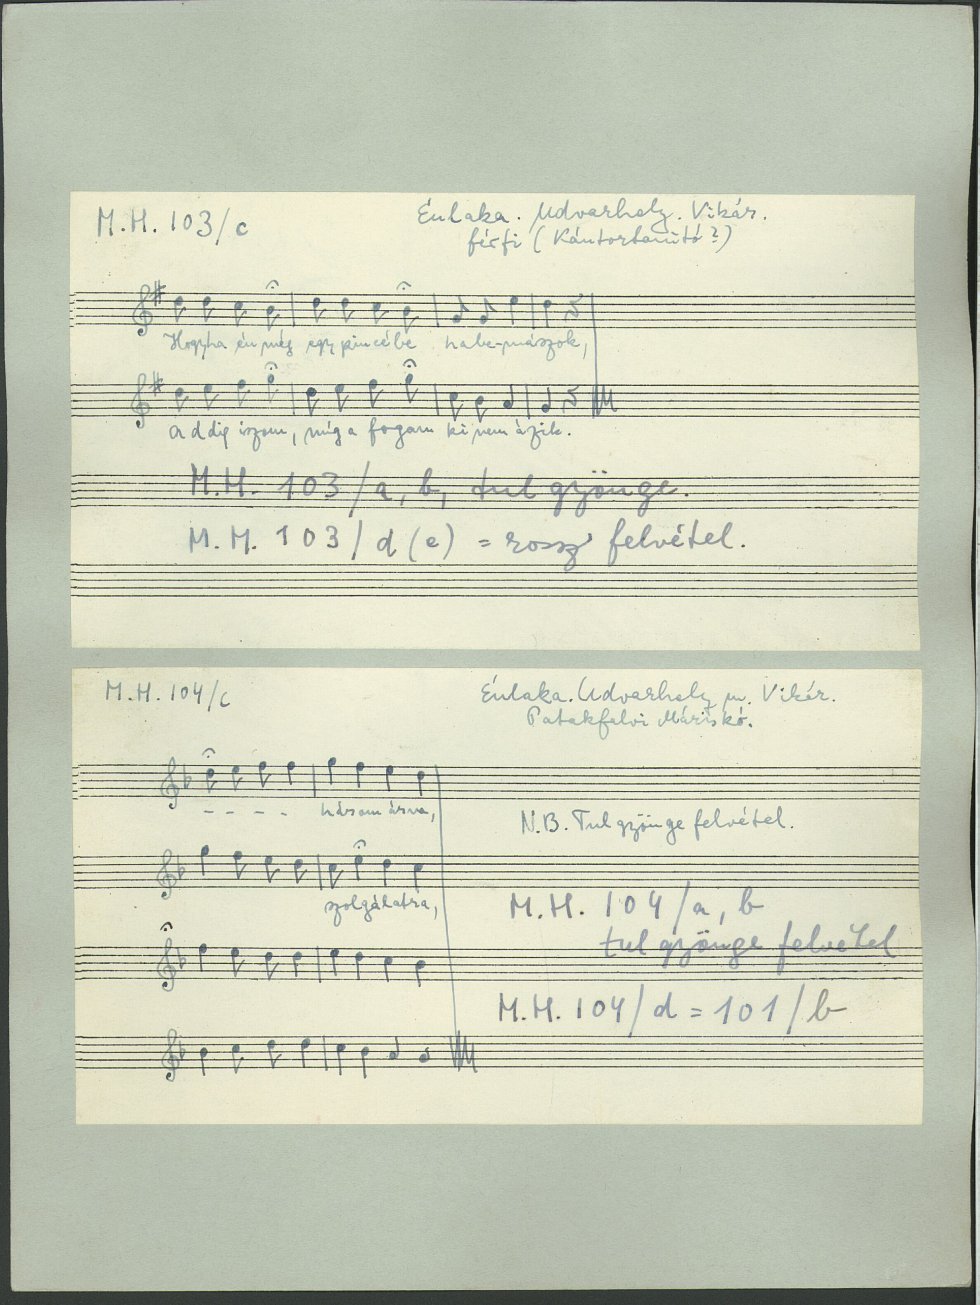 M.H. 103/c
Énlaka. Udvarhely. Vikár.
férfi (Kántortanító?)
Hogyha én még egy pincébe habe-mászok,
addig iszom, míg a fogam ki nem ázik.
M.H. 103/a, b, tul gyönge.
M.H. 103/d(e) = rossz felvétel.
M.H. 104/c
Énlaka. Udvarhely m. Vikár.
Patakfalvi Máriskó.
- - - - három árva,
N.B. Tul gyönge felvétel.
szolgálatra,
M.H. 104/a, b
tul gyönge felvétel
M.H. 104/d = 101/b